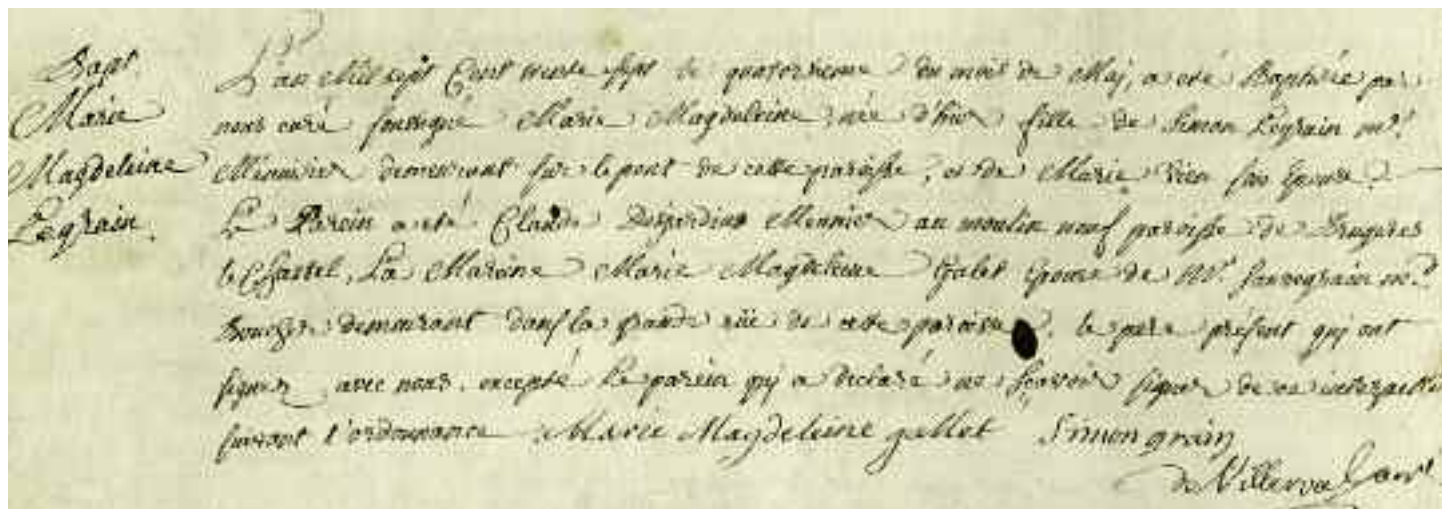 Bapt.
Marie
Magdeleine
Legrain.
L'an Mil sept Cent trente sept le quatorzieme du mois de Maj, a eté Baptisée par
nous curé soussigné Marie Magdeleine née d'hier fille de Simon Legrain md.
Meunier demeurant sur le pont de cette paroisse, et de Marie son Epouse.
Le Parein a eté Claude Desjardins Meunier au moulin neuf paroisse de Bruyeres
le Chastel, La Mareine Marie Magdeleine Galet Epouse de Mr. Sauvegrain md.
Boucher demeurant dans la Grande rüe de cette paroisse, le pere présent qui ont
signez avec nous, excepté le parein qui a declaré ne scavoir signer de ce interpellé
suivant l'ordonnance Marie Magdeleine gallet Simon grain
de Villerval